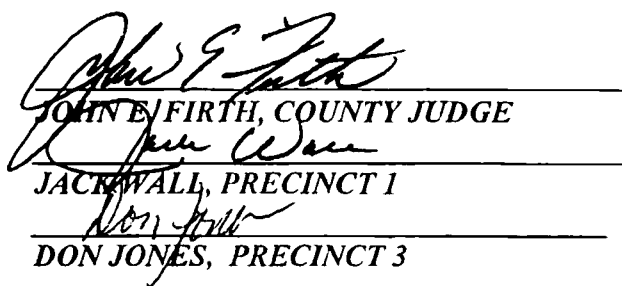 John E Firth
JOHN E. FIRTH, COUNTY JUDGE
Jack Wall
JACK WALL, PRECINCT 1
Don Jones
DON JONES, PRECINCT 3